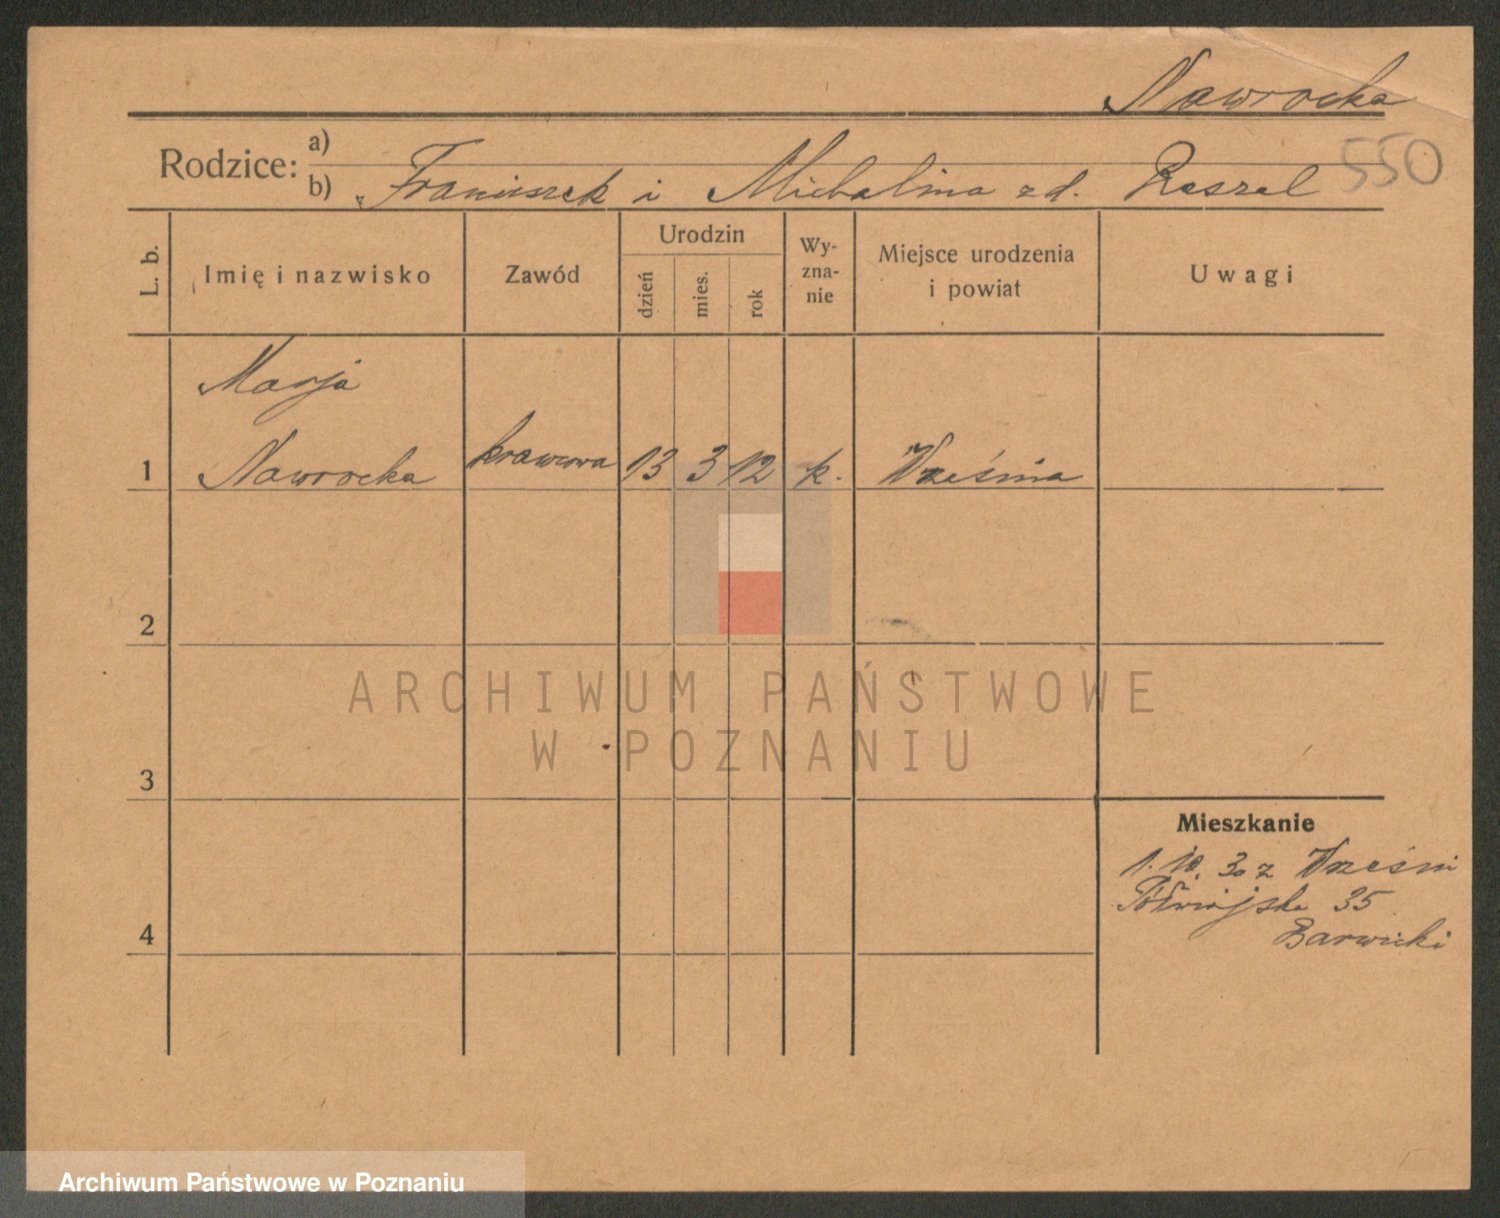 Nawrocka
550
Rodzice: a)
b) Franciszek i Michalina zd. Reszel
L. b.
Imię i nazwisko
Zawód
Urodzin
dzień
mies.
rok
Wy-
zna-
nie
Miejsce urodzenia
i powiat
Uwagi
Marja
1 Nawrocka krawcowa 13 3 12 k. Września
2
3
4
Mieszkanie
1. 10. 30 z Wrześni
Półwiejska 35
Barwicki
ARCHIWUM PAŃSTWOWE
W POZNANIU
Archiwum Państwowe w Poznaniu